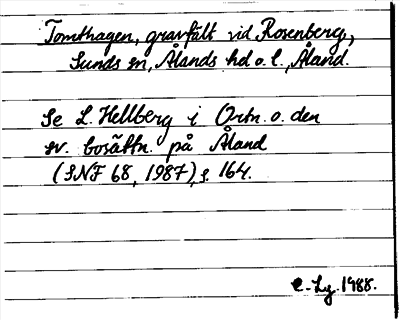 Tomthagen, gravfält vid Rosenberg,
Sunds sn, Ålands hd o. l., Åland.
Se L. Hellberg i Ortn. o. den
sv. bosättn. på Åland
(SNF 68, 1987), s. 164.
C-Lg. 1988.